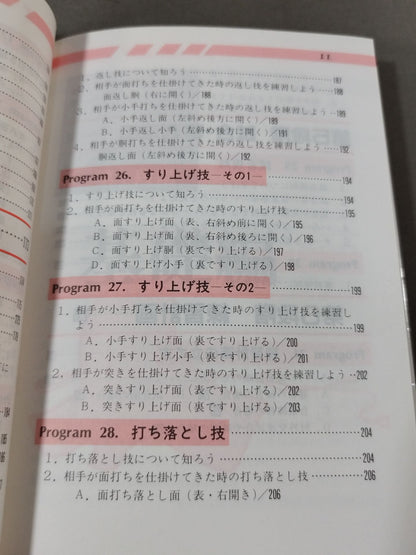 11
1. 返し技について知ろう 187
2. 相手が面打ちを仕掛けてきた時の返し技を練習しよう 188
面返し胴（右に開く）/188
3. 相手が小手打ちを仕掛けてきた時の返し技を練習しよう 189
A. 小手返し面（左斜め後方に開く）/189
B. 小手返し小手（左斜め後方に開く）/191
4. 相手が胴打ちを仕掛けてきた時の返し技を練習しよう 192
胴返し面（左斜め後方に開く）/192
Program 26. すり上げ技—その1— 194
1. すり上げ技について知ろう 194
2. 相手が面打ちを仕掛けてきた時のすり上げ技 195
A. 面すり上げ面（表、右斜め前に開く）/195
B. 面すり上げ面（裏、右斜め後ろに開く）/196
C. 面すり上げ胴（表ですり上げる）/197
D. 面すり上げ小手（裏ですり上げる）/198
Program 27. すり上げ技—その2— 199
1. 相手が小手打ちを仕掛けてきた時のすり上げ技を練習し
よう 199
A. 小手すり上げ面（裏ですり上げる）/200
B. 小手すり上げ小手（裏ですり上げる）/201
2. 相手が突きを仕掛けてきた時のすり上げ技を練習しよう 202
A. 突きすり上げ面（表ですり上げる）/202
B. 突きすり上げ面（裏ですり上げる）/203
Program 28. 打ち落とし技 204
1. 打ち落とし技について知ろう 204
2. 相手が面打ちを仕掛けてきた時の打ち落とし技 206
A. 面打ち落とし面（表・右開き）/206